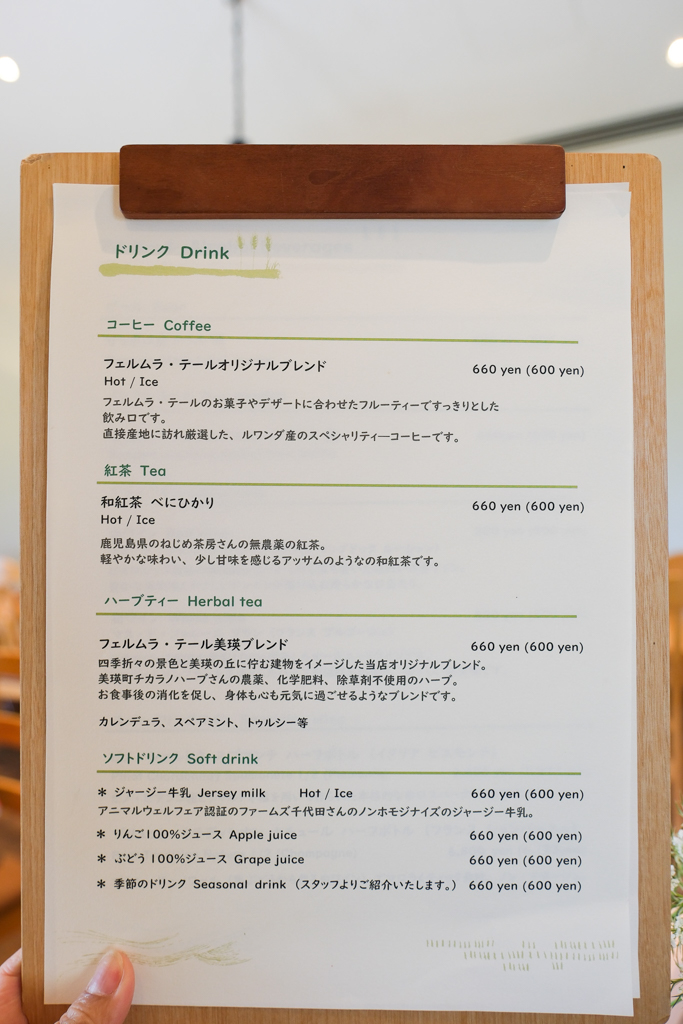 ドリンク Drink
コーヒー Coffee
フェルムラ・テールオリジナルブレンド 660 yen (600 yen)
Hot / Ice
フェルムラ・テールのお菓子やデザートに合わせたフルーティーですっきりとした
飲み口です。
直接産地に訪れ厳選した、ルワンダ産のスペシャリティーコーヒーです。
紅茶 Tea
和紅茶 べにひかり 660 yen (600 yen)
Hot / Ice
鹿児島県のねじめ茶房さんの無農薬の紅茶。
軽やかな味わい、少し甘味を感じるアッサムのようなの和紅茶です。
ハーブティー Herbal tea
フェルムラ・テール美瑛ブレンド 660 yen (600 yen)
四季折々の景色と美瑛の丘に佇む建物をイメージした当店オリジナルブレンド。
美瑛町チカラノハーブさんの農薬、化学肥料、除草剤不使用のハーブ。
お食事後の消化を促し、身体も心も元気に過ごせるようなブレンドです。
カレンデュラ、スペアミント、トゥルシー等
ソフトドリンク Soft drink
* ジャージー牛乳 Jersey milk Hot / Ice 660 yen (600 yen)
アニマルウェルフェア認証のファームズ千代田さんのノンホモジナイズのジャージー牛乳。
* りんご100%ジュース Apple juice 660 yen (600 yen)
* ぶどう100%ジュース Grape juice 660 yen (600 yen)
* 季節のドリンク Seasonal drink (スタッフよりご紹介いたします。) 660 yen (600 yen)